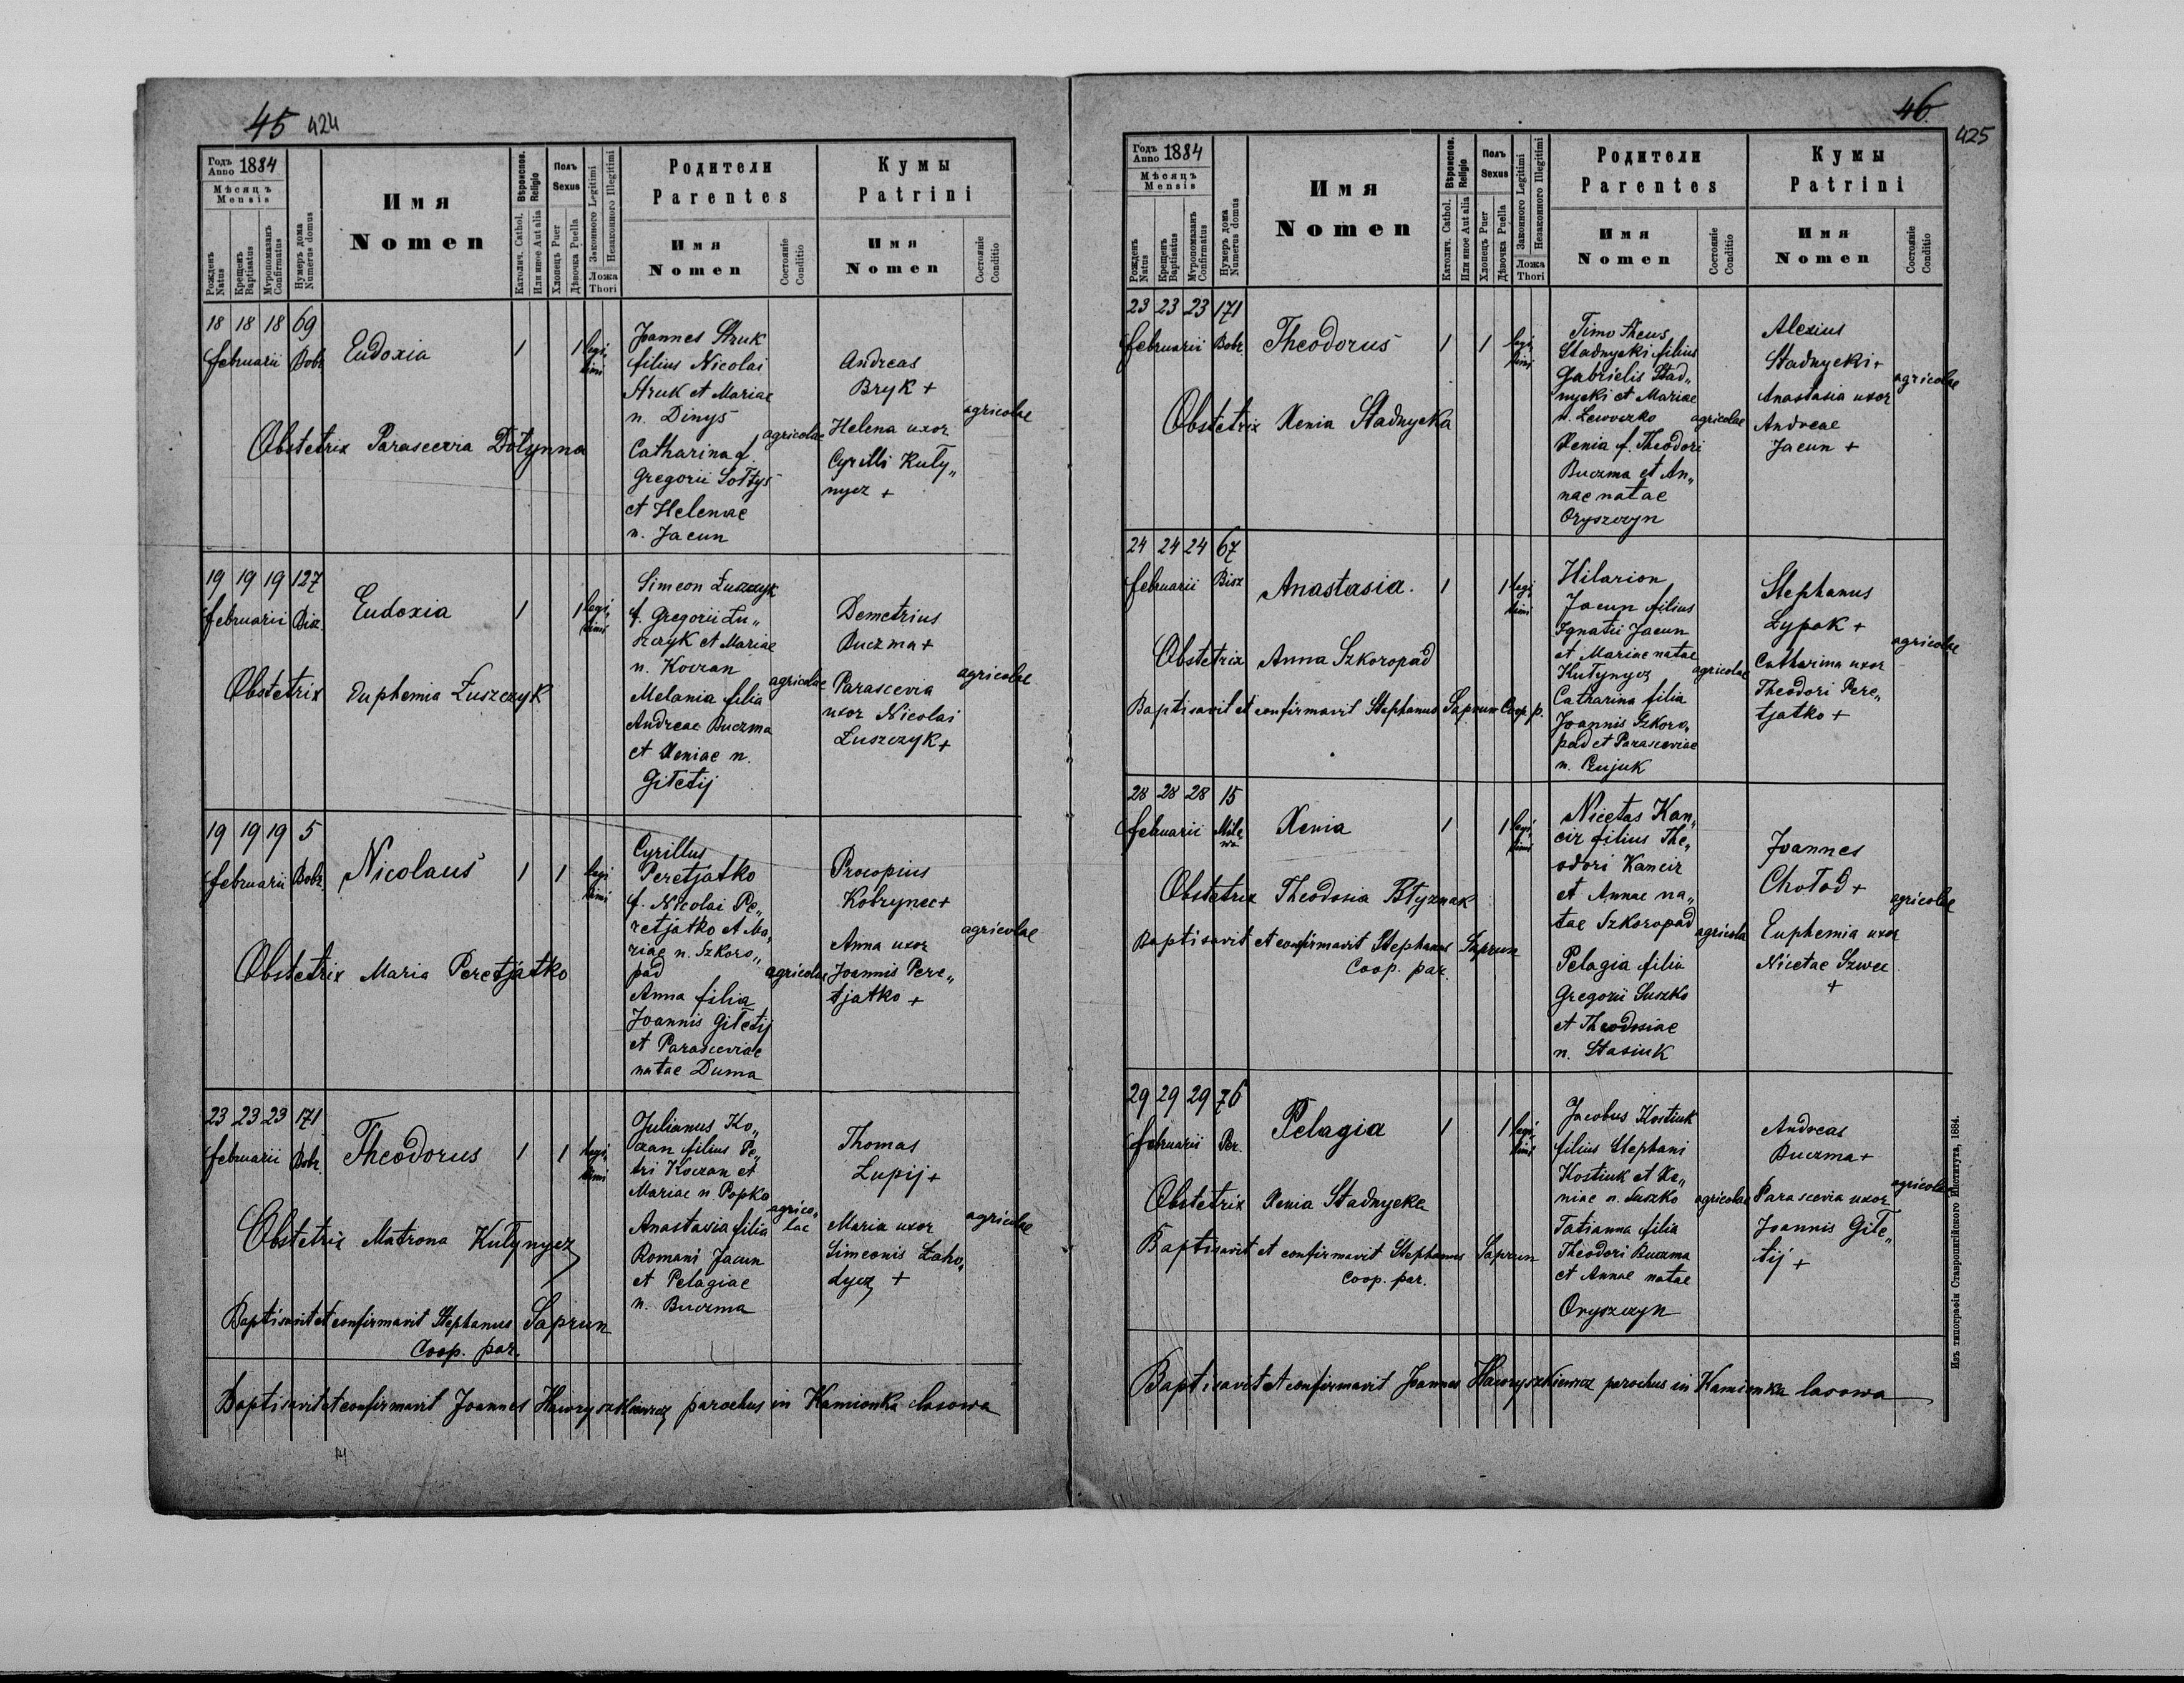 45 424
Годъ Anno 1884
Мѣсяцъ Mensis
Рожденъ Natus
Крещенъ Baptisatus
Мѵропомазанъ Confirmatus
Нумеръ дома Numerus domus
Имя
Nomen
Вѣроиспов. Religio
Католич. Cathol.
Или иное Aut alia
Полъ Sexus
Хлопецъ Puer
Дѣвочка Puella
Законного Legitimi
Незаконного Illegitimi
Ложа Thori
Родители
Parentes
Имя
Nomen
Состояніе Conditio
Кумы
Patrini
Имя
Nomen
Состояніе Conditio
18 18 18 69
februarii Bobr.
Eudoxia
1 1 legi„
timi
Joannes Struk
filius Nicolai
Struk et Mariae
n. Dinys
Catharina f.
Gregorii Sołtys
et Helenae
n. Jacun
agricolae
Andreas
Bryk +
Helena uxor
Cyrilli Kuty„
nycz +
agricolae
Obstetrix Parascevia Dołynna
19 19 19 127
februarii
Eudoxia
1 1 legi„
timi
Simeon Łuszczyk
f. Gregorii Łu„
szczyk et Mariae
n. Koczan
Melania filia
Andreae Buczma
et Xeniae n.
Giletij
agricolae
Demetrius
Buczma +
Parascevia
uxor Nicolai
Łuszczyk +
agricolae
Obstetrix Euphemia Łuszczyk
19 19 19 5
februarii Bobr.
Nicolaus
1 1 legi
timi
Cyrillus
Peretjatko
f. Nicolai Pe„
retjatko et Ma„
riae n. Szkoro„
pad
Anna filia
Joannis Giletij
et Parasceviae
natae Duma
agricolae
Procopius
Kobrynec +
Anna uxor
Joannis Pere„
tjatko +
agricolae
Obstetrix Maria Peretjatko
23 23 23 171
februarii Bobr.
Theodorus
1 1 legi„
timi
Julianus Ko„
czan filius Pe„
tri Koczan et
Mariae n. Popko
Anastasia filia
Romani Jacun
et Pelagiae
n. Buczma
agrico„
lae
Thomas
Łupij +
Maria uxor
Simeonis Łaho„
dycz +
agricolae
Obstetrix Matrona Kutynycz
Baptisavit et confirmavit Stephanus Saprun
Coop. par.
Baptisavit et confirmavit Joannes Hawryszkiewicz parochus in Kamionka lasowa
46
425
Годъ Anno 1884
Мѣсяцъ Mensis
Рожденъ Natus
Крещенъ Baptisatus
Мѵропомазанъ Confirmatus
Нумеръ дома Numerus domus
Имя
Nomen
Вѣроиспов. Religio
Католич. Cathol.
Или иное Aut alia
Полъ Sexus
Хлопецъ Puer
Дѣвочка Puella
Законного Legitimi
Незаконного Illegitimi
Ложа Thori
Родители
Parentes
Имя
Nomen
Состояніе Conditio
Кумы
Patrini
Имя
Nomen
Состояніе Conditio
23 23 23 171
februarii Bobr.
Theodorus
1 1 legi„
timi
Timotheus
Stadnycki filius
Gabrielis Stad„
nycki et Mariae
n. Lewoczko
Xenia f. Theodori
Buczma et An„
nae natae
Oryszczyn
agricolae
Alexius
Stadnycki +
Anastasia uxor
Andreae
Jacun +
agricolae
Obstetrix Xenia Stadnycka
24 24 24 67
februarii Bisz
Anastasia.
1 1 legi„
timi
Hilarion
Jacun filius
Ignatii Jacun
et Mariae natae
Kutynycz
Catharina filia
Joannis Szkoro„
pad et Parasceviae
n.
agricolae
Stephanus
Łypak +
Catharina uxor
Theodori Pere„
tjatko +
agricolae
Obstetrix Anna Szkoropad
Baptisavit et confirmavit Stephanus Saprun Coop. p.
28 28 28 15
februarii Mile
wa
Xenia
1 1 legi„
timi
Nicetas Kan„
cir filius The„
odori Kancir
et Annae na„
tae Szkoropad
Pelagia filia
Gregorii Suszko
et Theodosiae
n. Stasiuk
agricolae
Joannes
Chołod +
Euphemia uxor
Nicetae Szwec
+
agricolae
Obstetrix Theodosia Błyzniak
Baptisavit et confirmavit Stephanus Saprun
Coop. par.
29 29 29 76
februarii Per.
Pelagia
1 1 legi„
timi
Jacobus Kostiuk
filius Stephani
Kostiuk et Xe„
niae n. Suszko
Tatianna filia
Theodori Buczma
et Annae natae
Oryszczyn
agricolae
Andreas
Buczma +
Parascevia uxor
Joannis Gile„
tij +
agricolae
Obstetrix Xenia Stadnycka
Baptisavit et confirmavit Stephanus Saprun
Coop. par.
Baptisavit et confirmavit Joannes Hawryszkiewicz parochus in Kamionka lasowa
Изъ типографіи Ставропигійского Института, 1884.